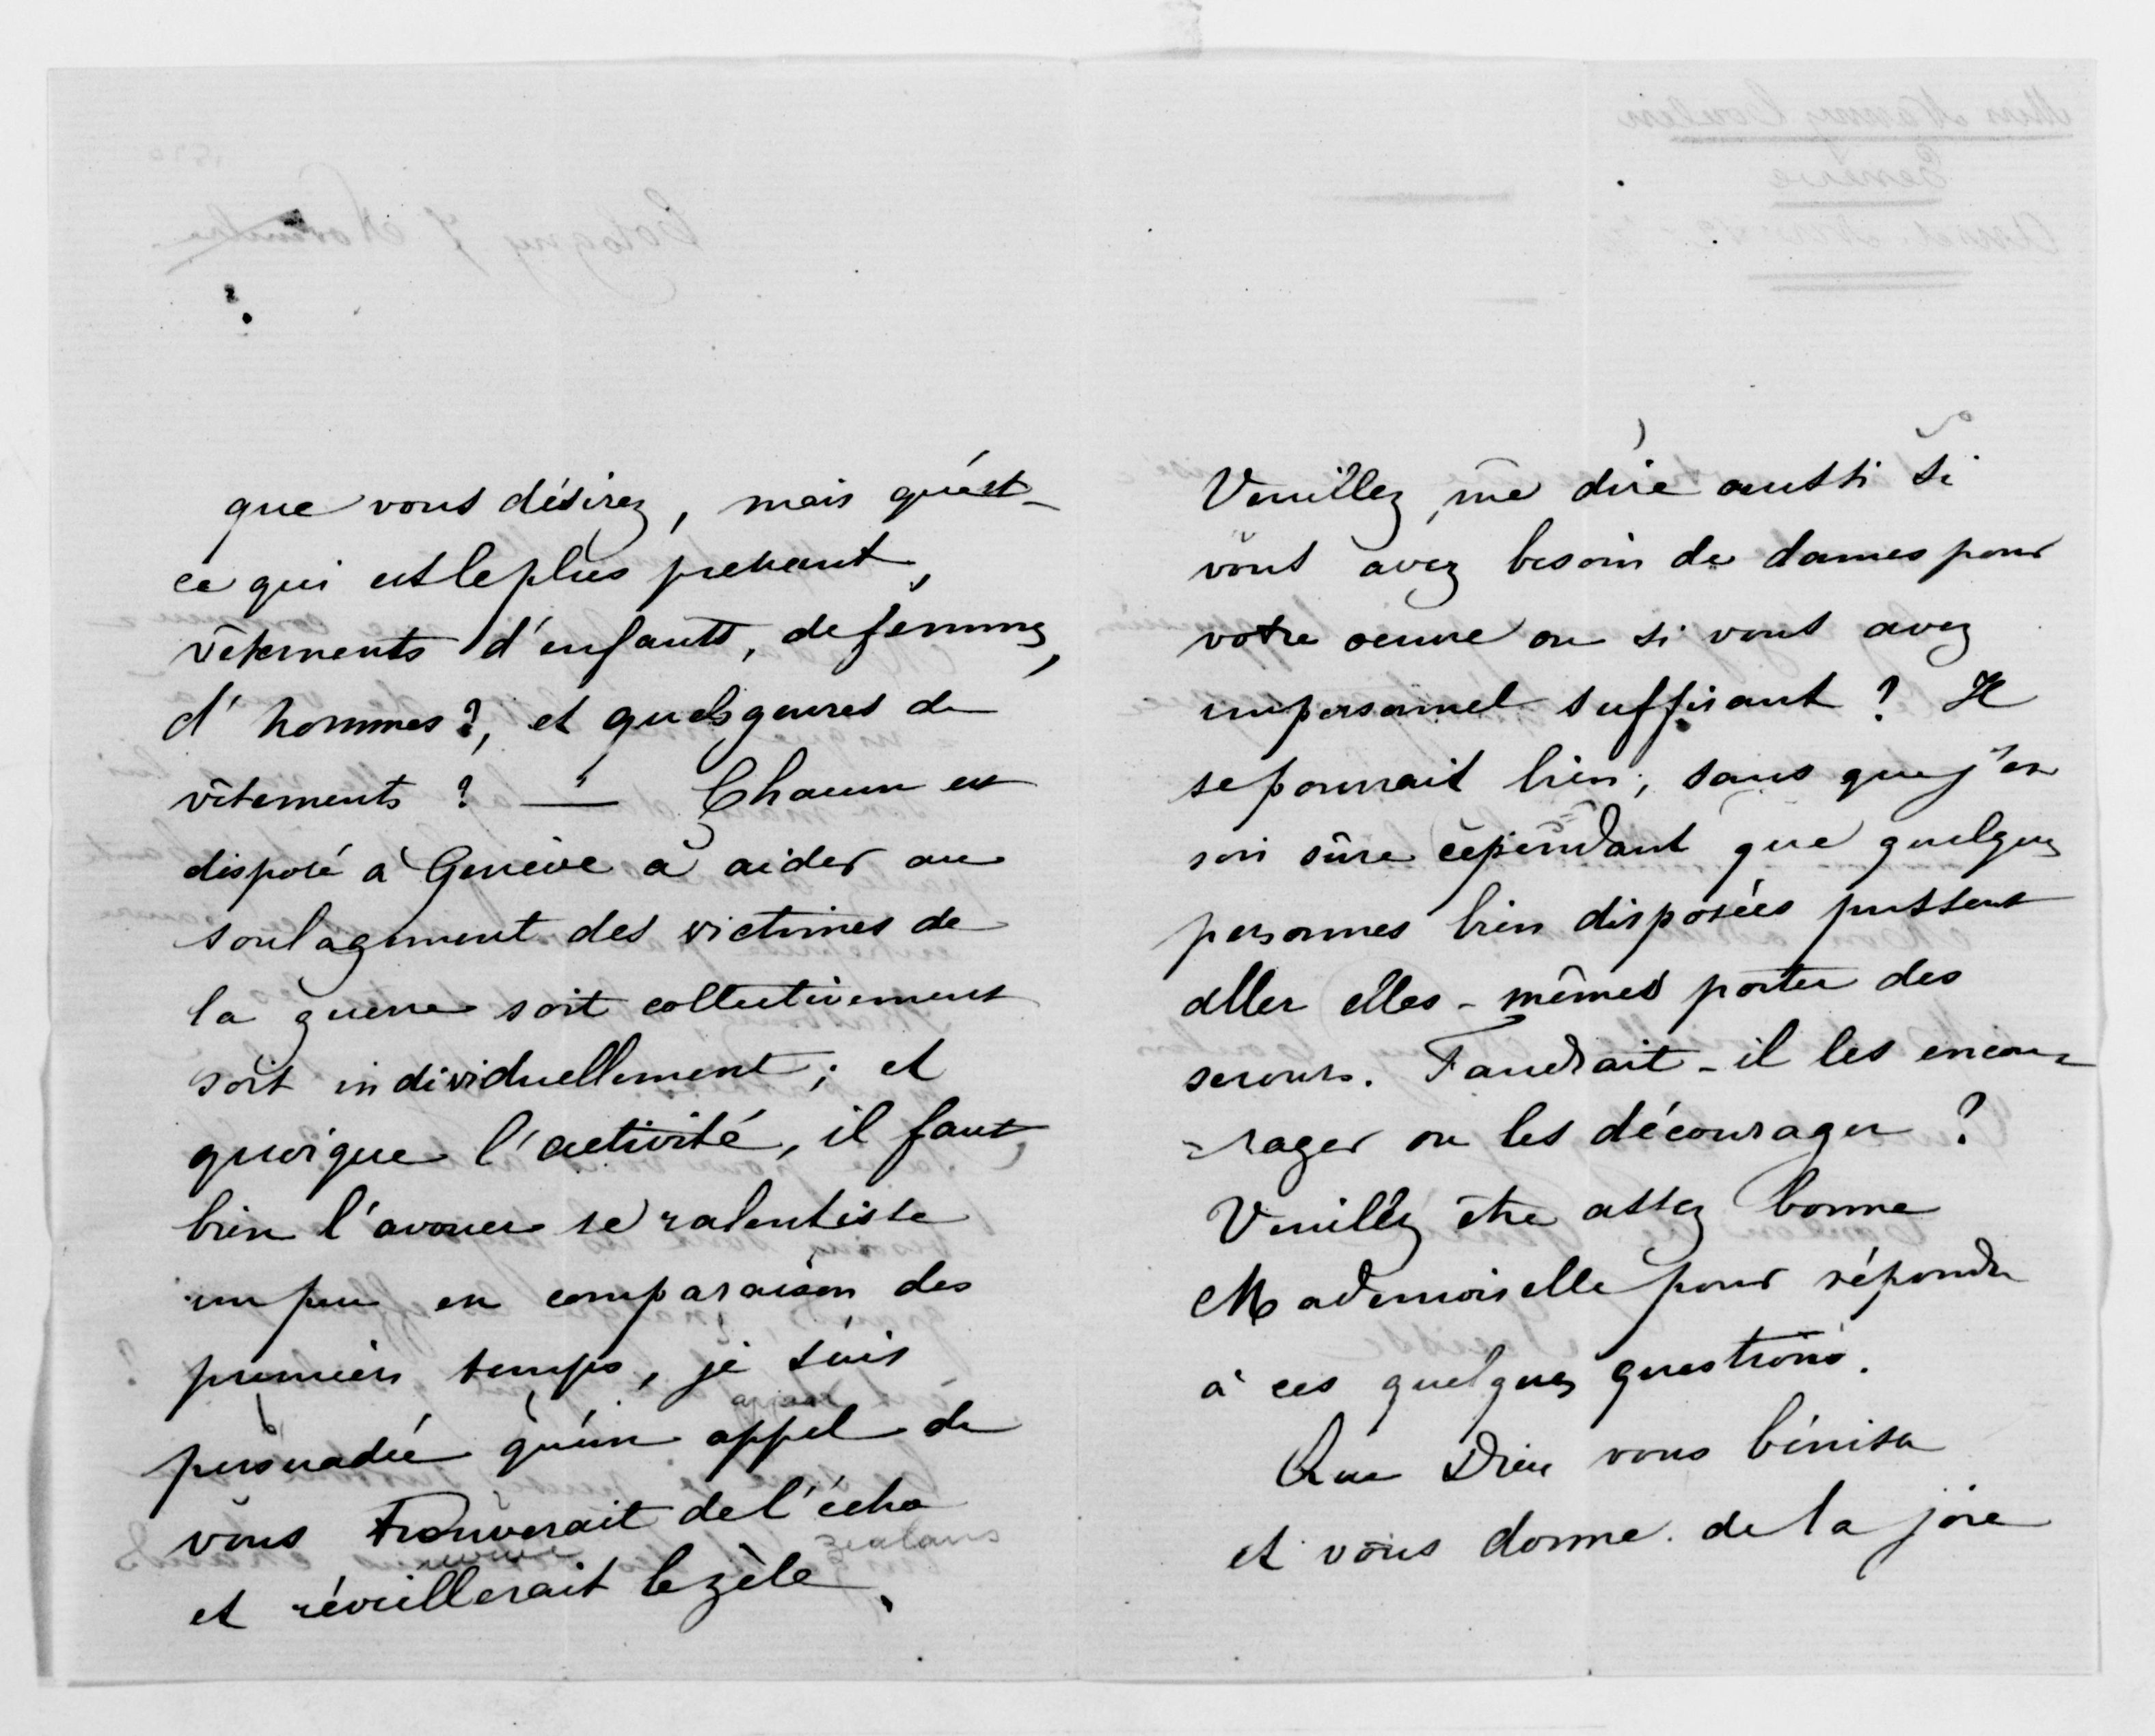 que vous désirez, mais qu'est-
ce qui est le plus pressant,
vêtements d'enfants, de femmes,
d'hommes?, et quels genres de
vêtements? — Chacun est
disposé à Genève à aider au
soulagement des victimes de
la guerre soit collectivement
soit individuellement; et
quoique l'activité, il faut
bien l'avouer se ralentisse
un peu en comparaison des
premiers temps, je suis
persuadée qu'un appel de
vous trouverait de l'écho
et réveillerait le zèle.
Veuillez me dire aussi si
vous avez besoin de dames pour
votre oeuvre ou si vous avez
un personnel suffisant? Il
se pourrait bien, sans que j'en
sois sûre cependant que quelques
personnes bien disposées pussent
aller elles-mêmes porter des
secours. Faudrait-il les encou=
=rager ou les décourager?
Veuillez être assez bonne
Mademoiselle pour répondre
à ces quelques questions.
Que Dieu vous bénisse
et vous donne de la joie